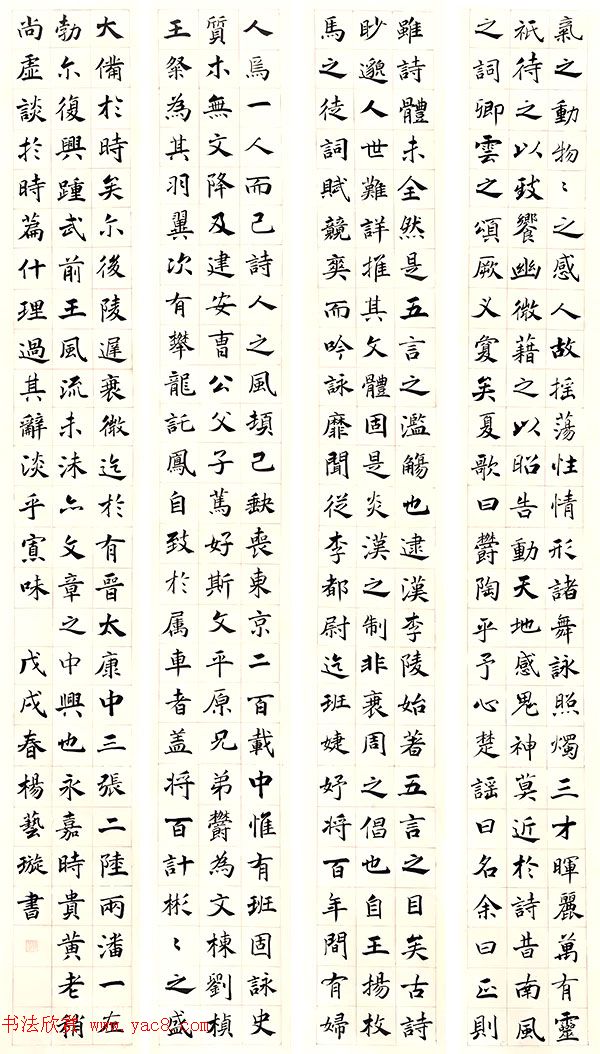 氣之動物〻之感人故揺蕩性情形諸舞詠照燭三才暉麗萬有靈
祇待之以致饗幽微藉之以昭告動天地感鬼神莫近於詩昔南風
之詞卿雲之頌厥义敻矣夏歌曰鬱陶乎予心楚謠曰名余曰正則
雖詩體未全然是五言之濫觴也逮漢李陵始著五言之目矣古詩
眇邈人世難詳推其文體固是炎漢之制非衰周之倡也自王揚枚
馬之徒詞賦競爽而吟詠靡聞從李都尉迄班婕妤将百年間有婦
人焉一人而已詩人之風頓已缺喪東京二百載中惟有班固詠史
質木無文降及建安曹公父子篤好斯文平原兄弟鬱為文棟劉楨
王粲為其羽翼次有攀龍託鳳自致於属車者盖将百計彬〻之盛
大備於時矣尒後陵遲衰微迄於有晋太康中三張二陸兩潘一左
勃尒復興踵武前王風流未沬亦文章之中興也永嘉時貴黄老稍
尚虛談於時篇什理過其辭淡乎寡味 戊戌春楊藝璇書
书法欣赏 www.yac8.com